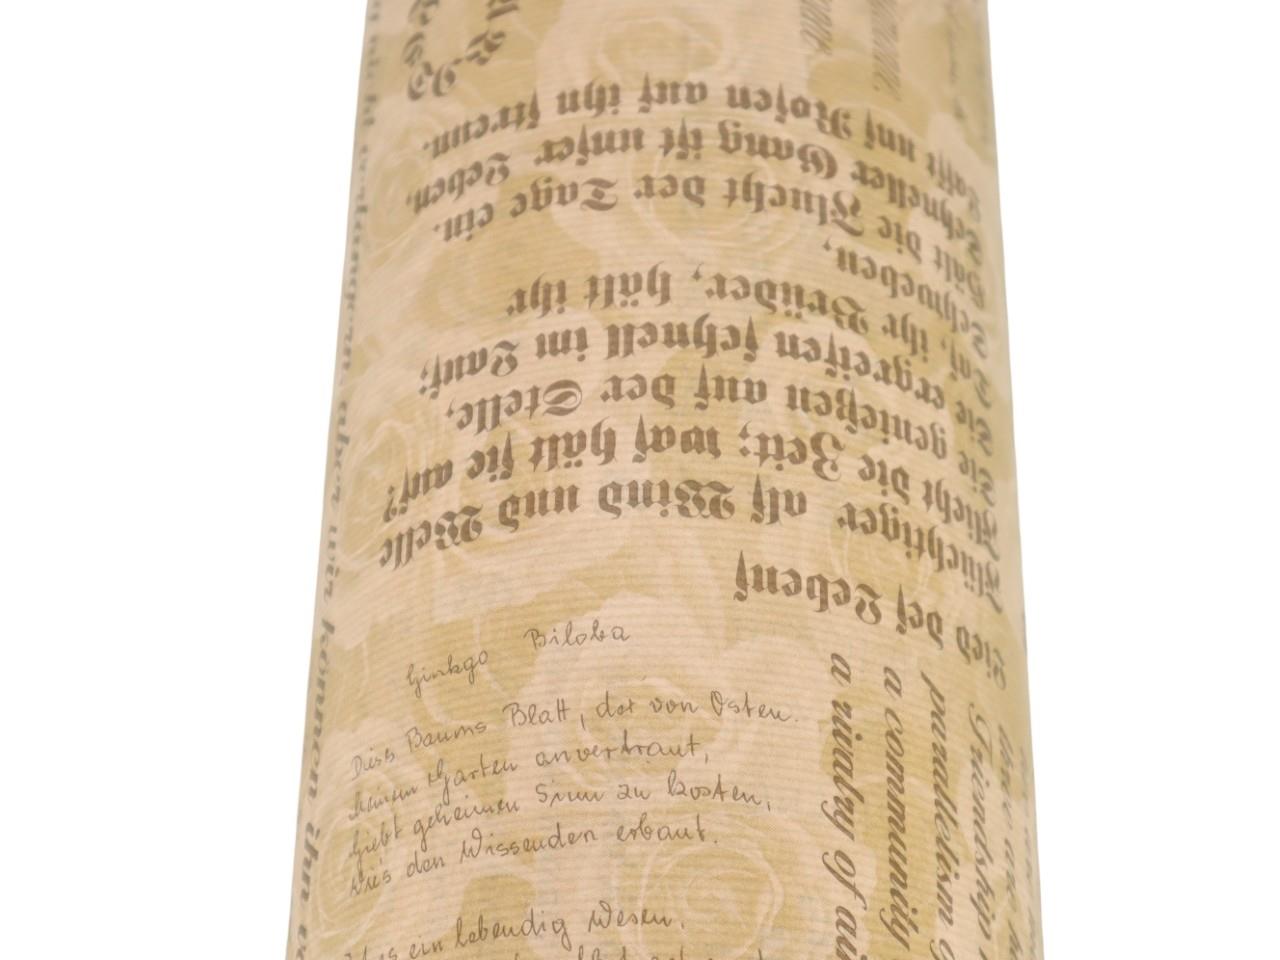 Lied des Lebens
Flüchtiger als Wind und Welle
Flieht die Zeit; was hält sie auf?
Sie genießen auf der Stelle,
Sie ergreifen schnell im Lauf;
Das, ihr Brüder, hält ihr
Schweben,
Hält die Flucht der Tage ein.
Schneller Gang ist unser Leben,
Lasst uns Rosen auf ihn streun.
Ginkgo Biloba
Dieses Baums Blatt, der von Osten
meinem Garten anvertraut,
Giebt geheimen Sinn zu kosten,
Wie's den Wissenden erbaut.
ein lebendig Wesen.
Friendship
parallelism
a community
a rivalry of
aber wir können ihn